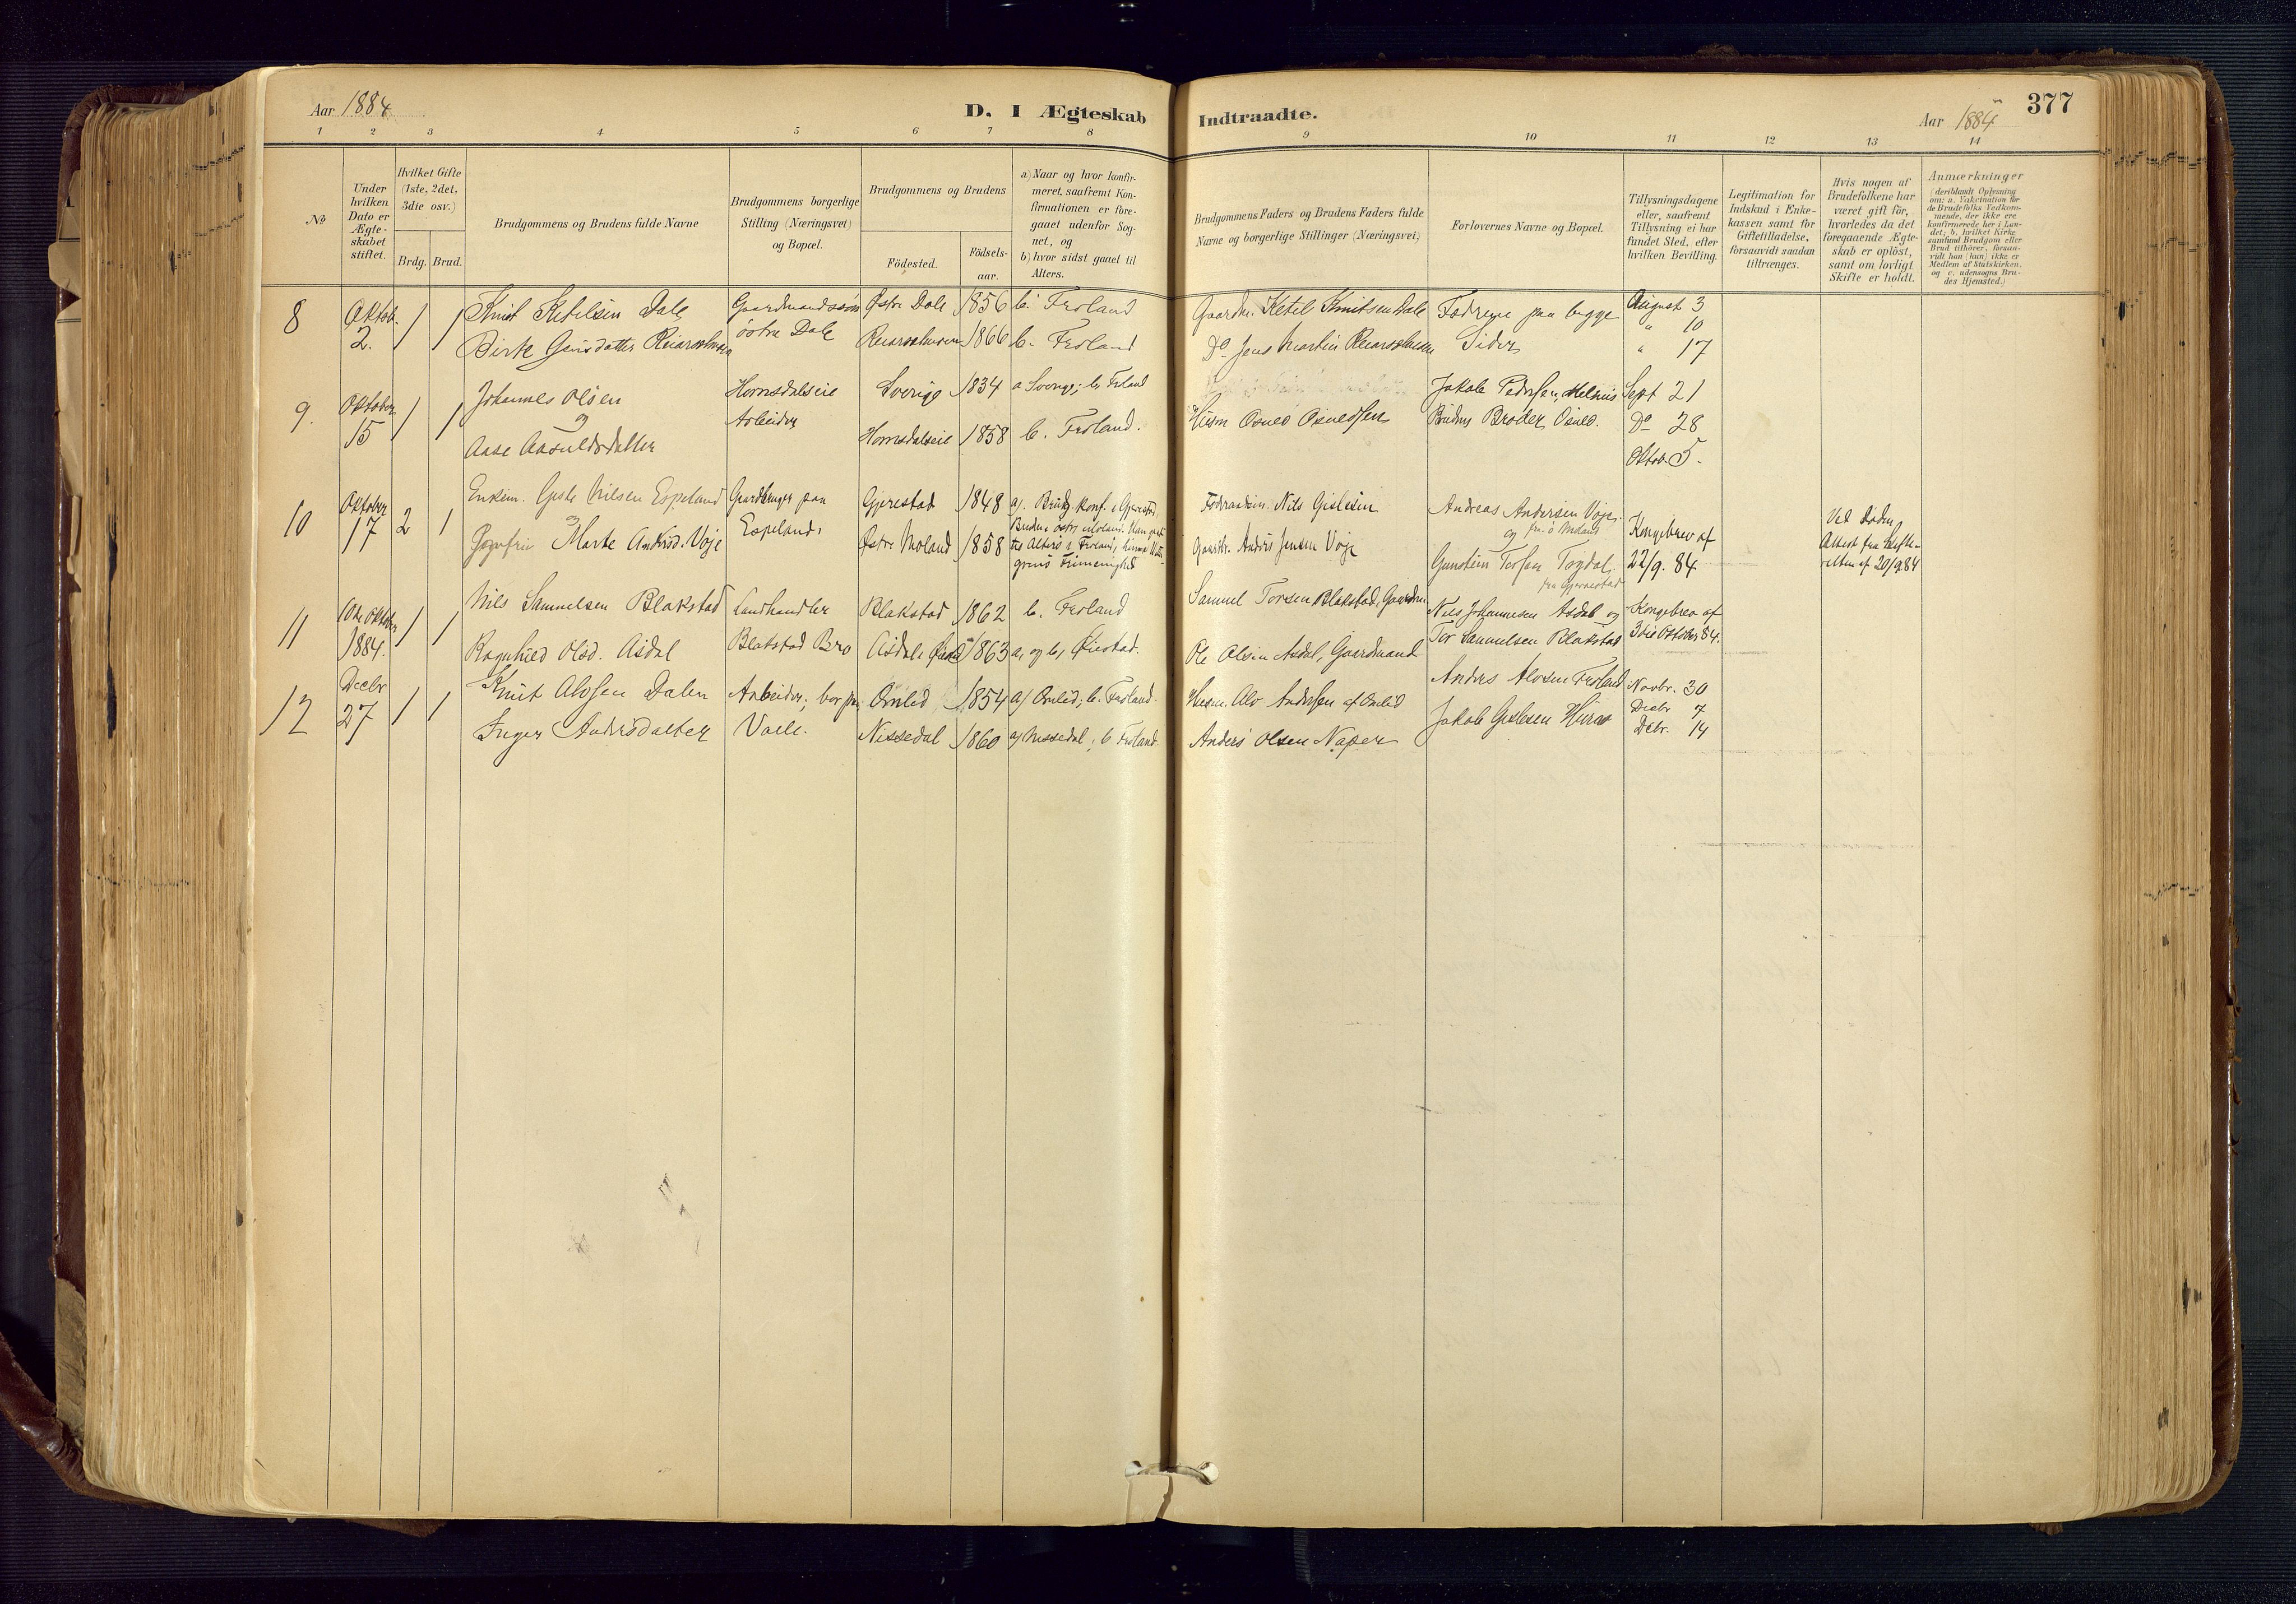 Aar 1884
D. I Ægteskab Indtraadte.
Aar 1884
377
1 2 3 4 5 6 7 8 9 10 11 12 13 14
No
Under hvilken Dato er Ægteskabet stiftet.
Hvilket Gifte (1ste, 2det, 3die osv.)
Brdg. Brud.
Brudgommens og Brudens fulde Navne
Brudgommens borgerlige Stilling (Næringsvei) og Bopæl.
Brudgommens og Brudens
Födested.
Födsels-aar.
a) Naar og hvor konfirmeret, saafremt Konfirmationen er foregaaet udenfor Sognet, og
b) hvor sidst gaaet til Alters.
Brudgommens Faders og Brudens Faders fulde Navne og borgerlige Stillinger (Næringsvei)
Forlovernes Navne og Bopæl.
Tillysningsdagene eller, saafremt Tillysning ei har fundet Sted, efter hvilken Bevilling.
Legitimation for Indskud i Enkekassen samt for Giftetilladelse, forsaavidt saadan tiltrænges.
Hvis nogen af Brudefolkene har været gift för, hvorledes da det foregaaende Ægteskab er oplöst, samt om lovligt Skifte er holdt.
Anmærkninger (deriblandt Oplysning om: a. Vakcination for de Brudefolks Vedkommende, der ikke ere konfirmerede her i Landet; b. hvilket Kirkesamfund Brudgom eller Brud tilhörer, forsaavidt han (hun) ikke er Medlem af Statskirken, og c. udensogns Brudes Hjemsted.)
8 Oktob. 2. 1 1
Knut Ketilsen Dale Gaardmandssøn Østre Dale 1856 b. Froland Gaardm. Ketel Knutsen Dale Fædrene paa begge August 3
østre Dale
" 10
Birte Jensdatter 1866 b. Froland Do Jens Martin Sider " 17
9. Oktober 15 1 1
Johannes Olsen Hornsdalseie Sverige 1834 a Sverige; b. Froland Jakob Pedersen, Sept 21
og Arbeider
Aase Aasulvsdatter Hornsdalseie 1858 b. Froland. Husm Brudens Broder Do 28
Oktob. 5.
10 Oktober 17 2 1
Enkem. Gisle Nilsen Espeland Gaardbruger paa Gjerestad 1848 a). Brudg. konf. i Gjerestad, Føderaadsm. Nils Gislesen Andreas Andersen Voje
og Espeland. fra ø Moland
Marte Andersd. Voje Østre Moland 1858 Gaardbr. Anders Jensen Voje og Kongebrev af
Gunstein Torsen 22/9. 84
fra Gjerrestad
Ved Døden
Attest fra Skifteretten af 20/9 84
11 Oktober 1884. 1 1
Nils Samuelsen Blakstad Landhandler Blakstad 1862 b. Froland Samuel Torsen Blakstad, Gaardm. Nils Johannesen Asdal og Kongebrev af
Ragnhild Olsd. Asdal Blakstad Bro Asdal 1863 a, og b, Øiestad. Ole Olsen Asdal, Gaardmand Tor Samuelsen Blakstad 3die Oktober 84.
12 Decbr 27 1 1
Knut Alvsen Dalen Arbeider; bor paa Omlid 1854 a) Omlid; b. Froland. Husm. Alv Andersen af Omlid Anders Alvsen Froland Novbr. 30
Decbr 7
Inger Andersdatter Nissedal 1860 a) Nissedal; b. Froland. Anders Olsen Naper Jakob Gislesen Decbr. 14